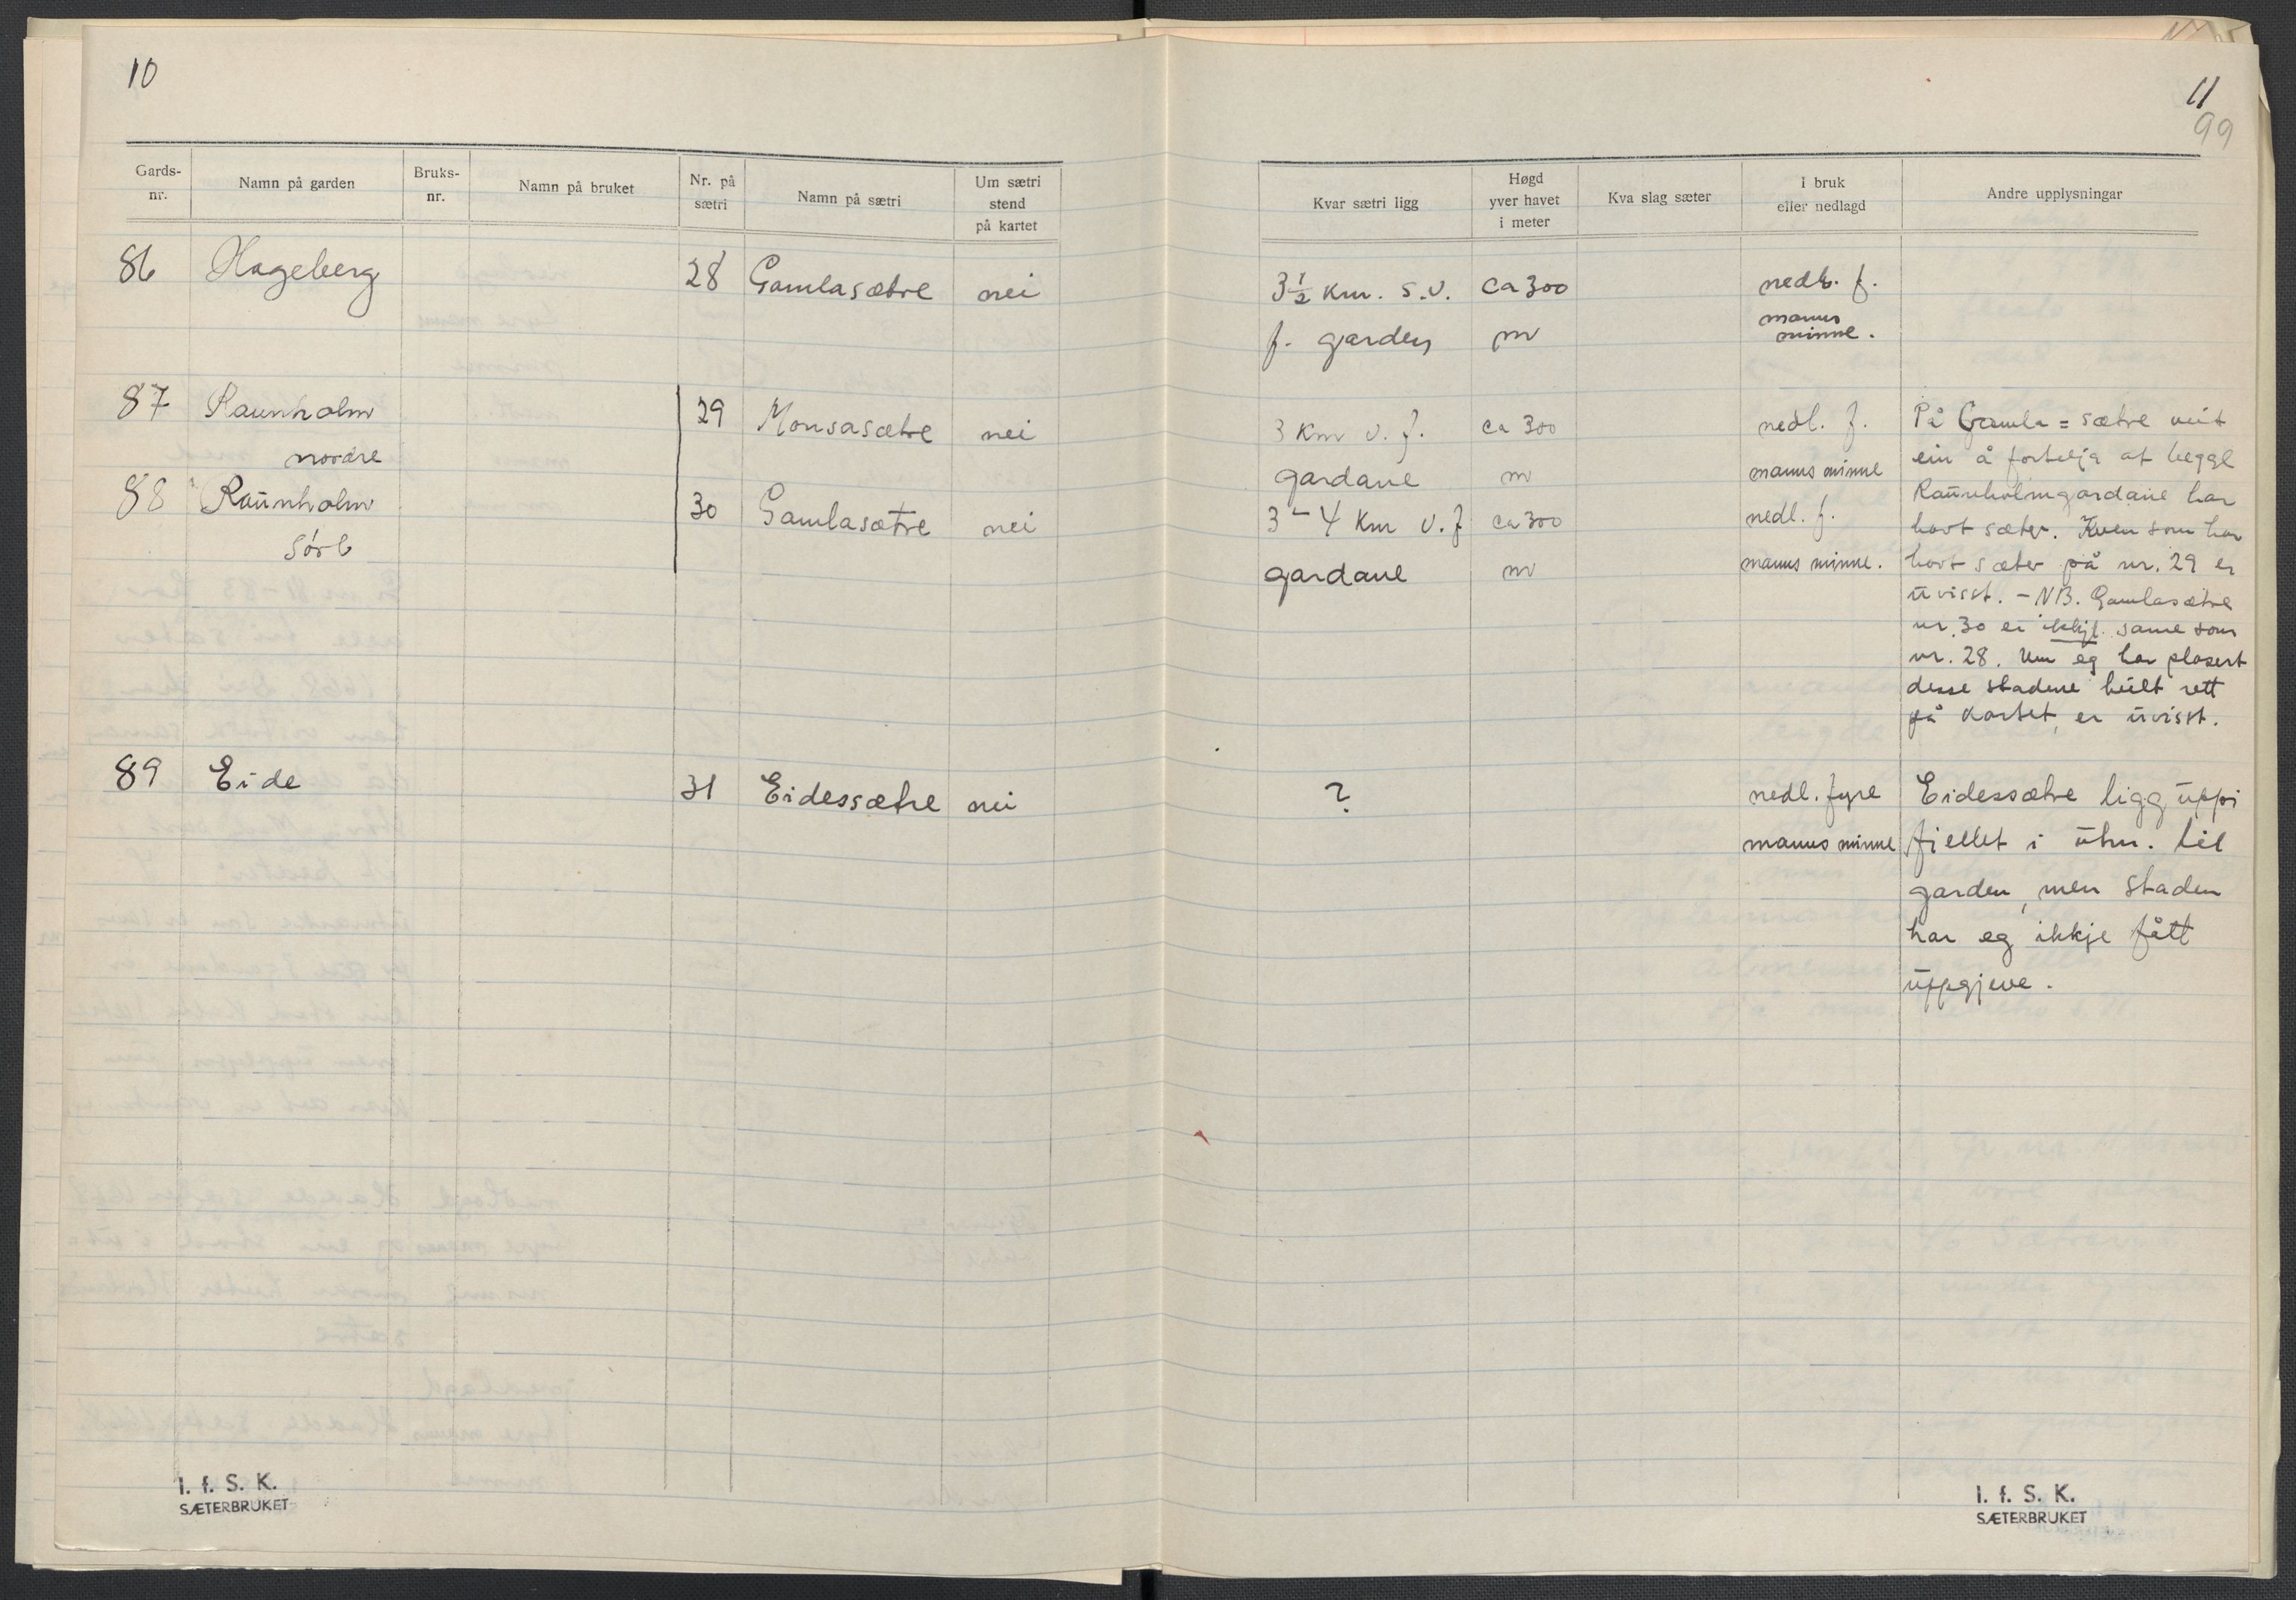 10
Gards-nr. Namn på garden Bruks-nr. Namn på bruket Nr. på sætri Namn på sætri Um sætri stend på kartet
86 Hageberg 28 Gamlasætre nei
87 Raunholm 29 Monsasætre nei
nordre
88 Raunholm 30 Gamlasætre nei
sörb
89 Eide 31 Eidessætre nei
I. f. S. K.
SÆTERBRUKET
11
99
Kvar sætri ligg Høgd yver havet i meter Kva slag sæter I bruk eller nedlagd Andre upplysningar
3 1/2 km. s.v. ca 300 nedl. f.
f. garden m manns
minne.
3 km v. f. ca 300 nedl. f.
gardane m manns minne
3-4 km v. f ca 300 nedl. f.
gardane m manns minne.
På Gamla=sætre veit
ein å fortelja at begge
Raunholmgardane har
havt sæter. Kven som har
havt sæter på nr. 29 er
uvisst. – NB. Gamlasætre
nr. 30 er ikkje same som
nr. 28. Um eg har plasert
desse stadene heilt rett
på kartet, er uvisst.
? nedl. fyre Eidessætre ligg uppi
manns minne fjellet i utm. til
garden, men staden
har eg ikkje fått
uppgjeve.
I. f. S. K.
SÆTERBRUKET